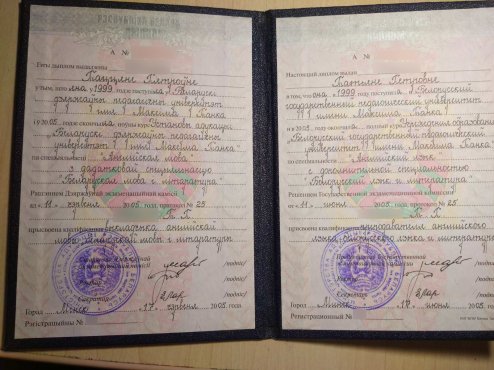 А №
Гэты дыплом выдадзены
Таццяне Пятроўне
у тым, што яна ў 1999 годзе паступіла ў Беларускі
дзяржаўны педагагічны універсітэт
імя Максіма Танка
і ў 2005 годзе скончыла поўны курс
Беларускі дзяржаўны педагагічны
універсітэт імя Максіма Танка
па спецыяльнасці
"Англійская мова"
з дадатковай спецыяльнасцю
"Беларуская мова і літаратура"
Рашэннем Дзяржаўнай экзаменацыйнай камісіі
ад «11» чэрвеня 2005 года, пратакол № 25
Т.П.
прысвоена кваліфікацыя Выкладчыка англійскай
мовы, беларускай мовы і літаратуры
Старшыня Дзяржаўнай
экзаменацыйнай камісіі /подпіс/
Рэктар /подпіс/
Сакратар /подпіс/
Горад Мінск 17 чэрвеня 2005 года.
Рэгістрацыйны №
А №
Настоящий диплом выдан
Татьяне Петровне
в том, что она в 1999 году поступила в Белорусский
государственный педагогический университет
имени Максима Танка
и в 2005 году окончила полный курс
"Белорусский государственный педагогический
университет имени Максима Танка"
по специальности
"Английский язык
с дополнительной специальностью
"Белорусский язык и литература"
Решением Государственной экзаменационной комиссии
от «11» июня 2005 года, протокол № 25
Т.П.
присвоена квалификация Преподавателя английского
языка, белорусского языка и литературы
Председатель Государственной
экзаменационной комиссии /подпись/
Ректор /подпись/
Секретарь /подпись/
Город Минск 17 июня 2005 года.
Регистрационный №